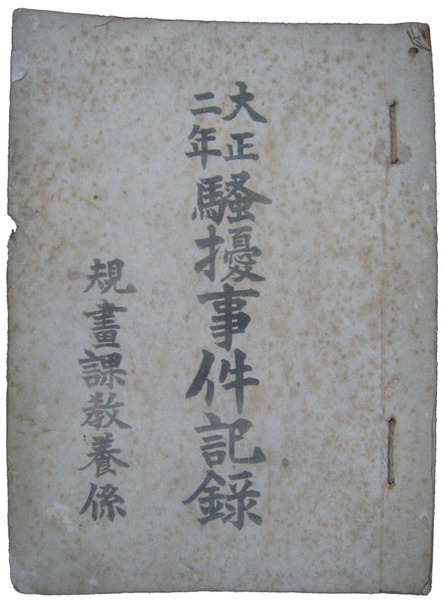 大正
二年
騒擾事件記録
規畫課教養係